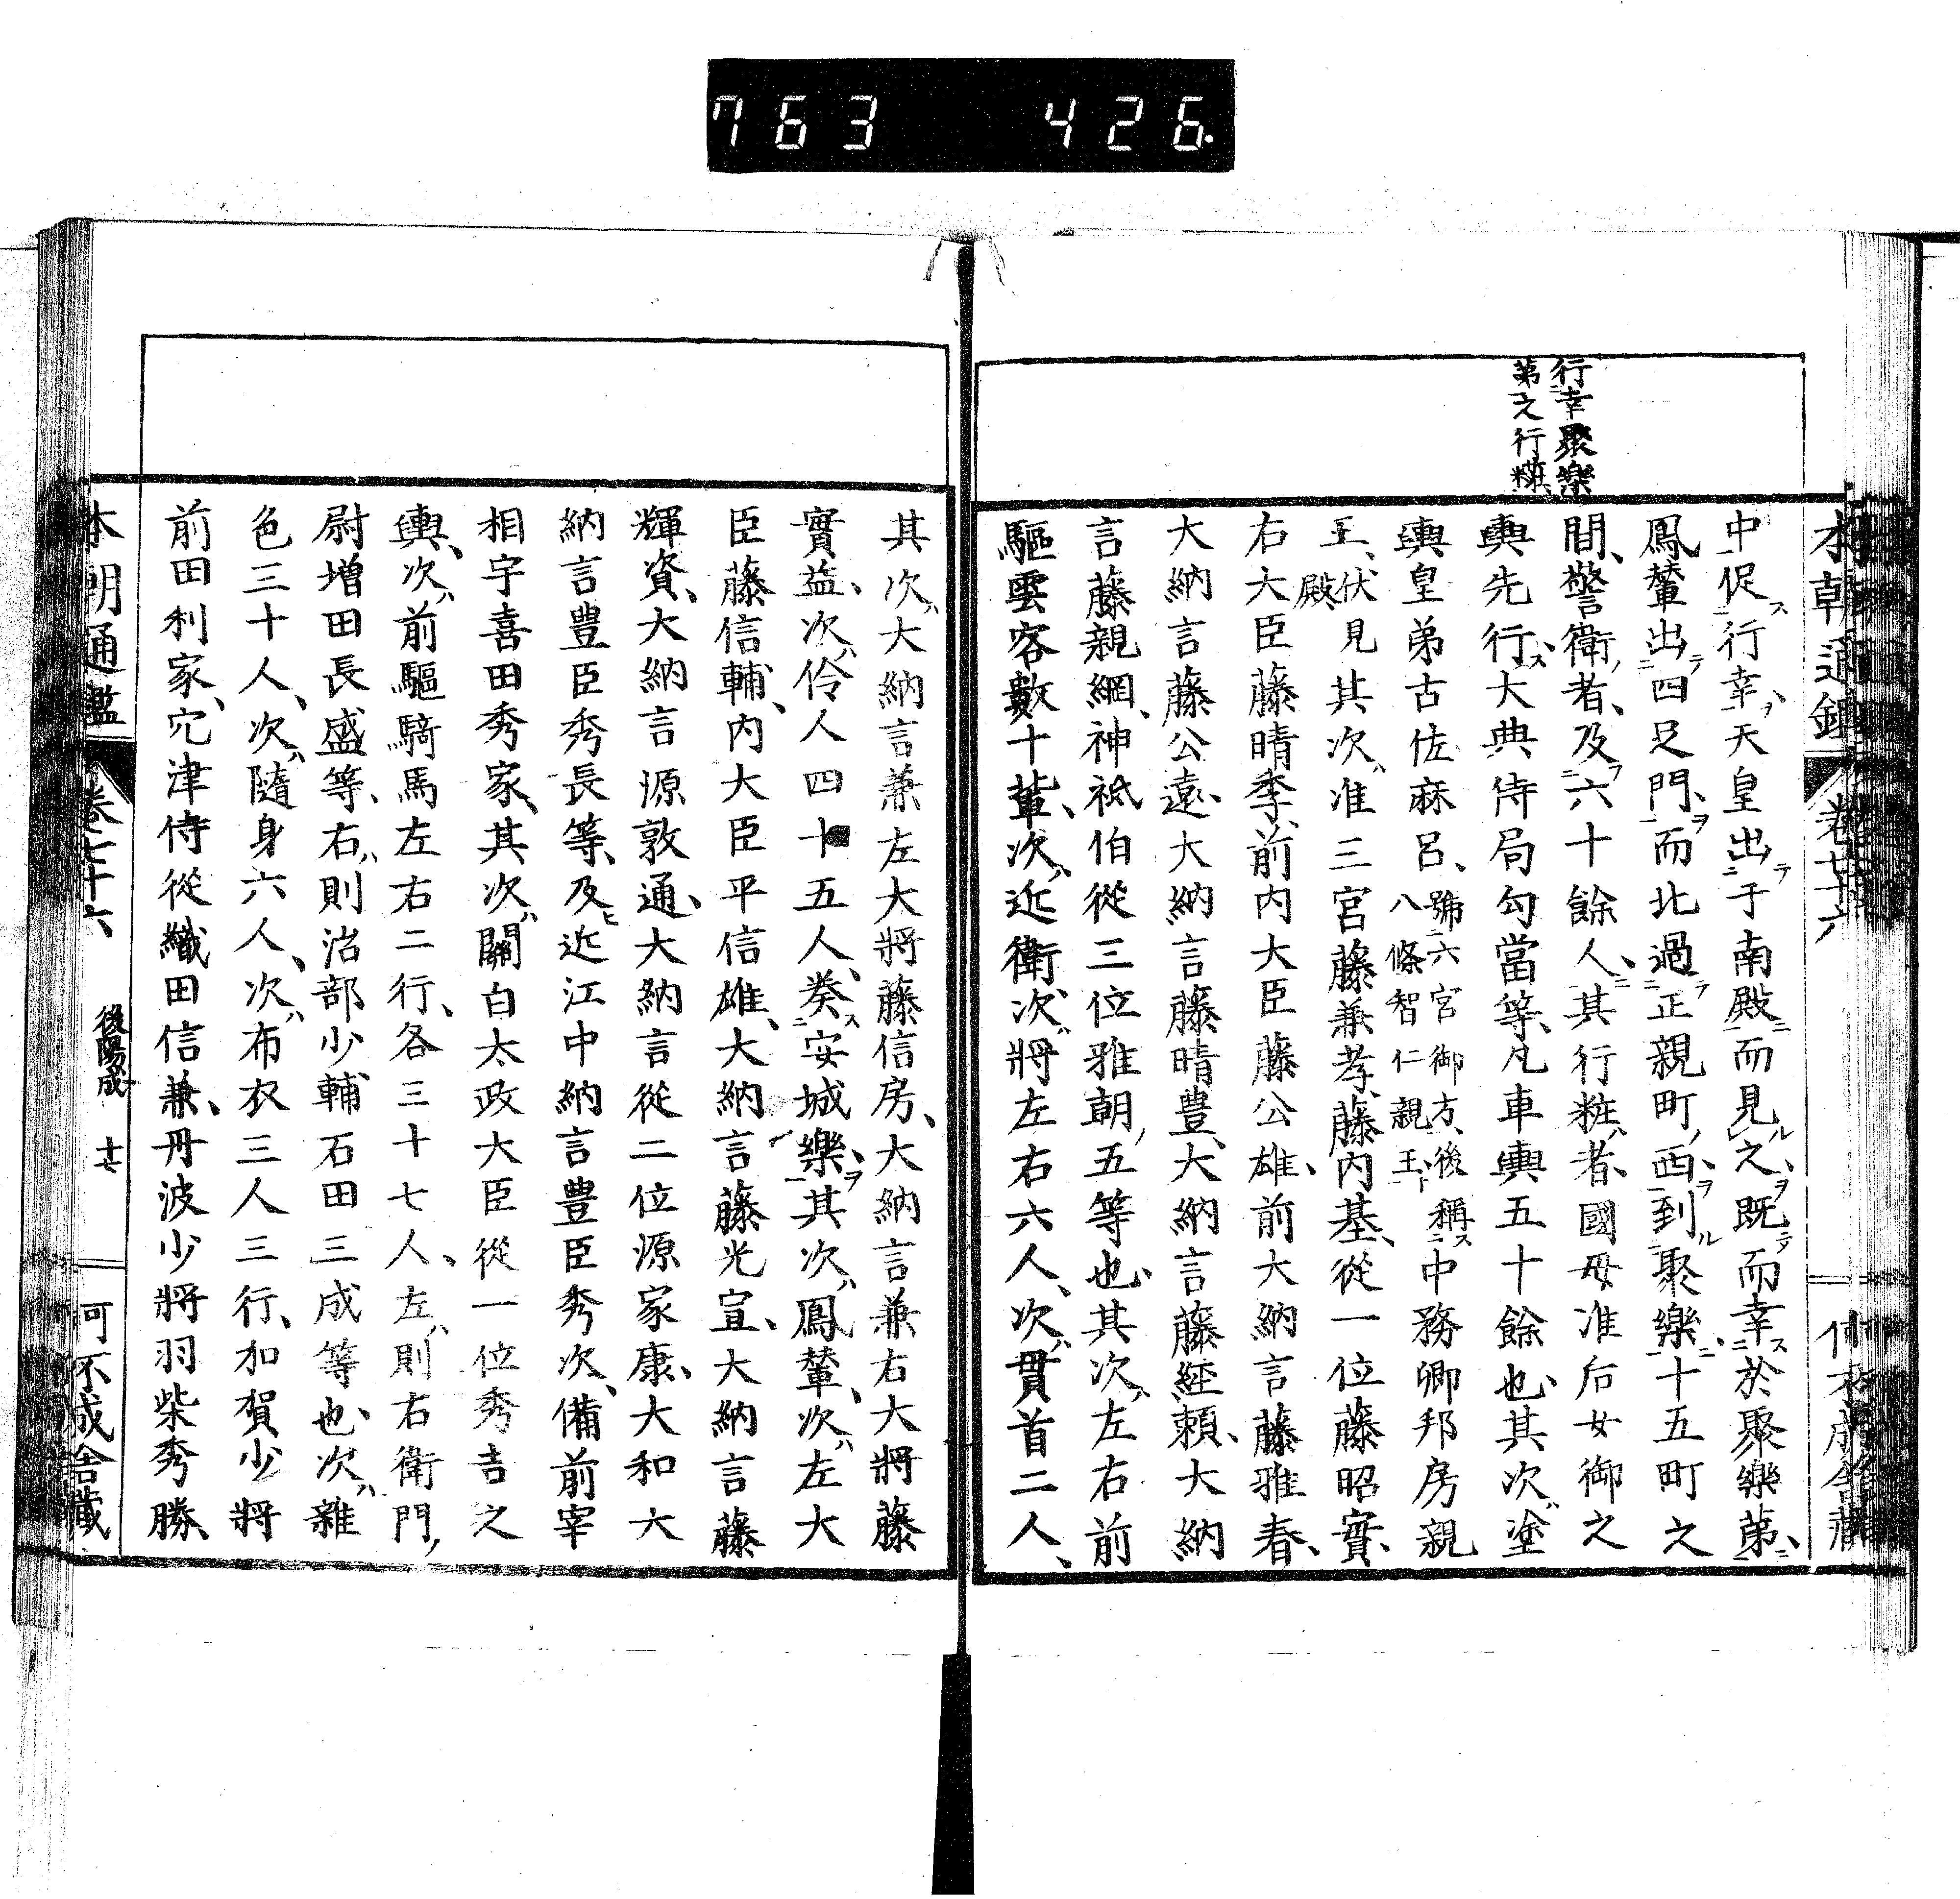 763 426
行幸聚樂
第之行粧
中促行幸、天皇出于南殿而見之、既而幸於聚樂第、
鳳輦出四足門、而北過正親町、西到聚樂、十五町之
間、警衛者、及六十餘人、其行粧者、國母准后女御之
輿先行、大典侍局勾當等、凡車輿五十餘也、其次塗
輿皇弟古佐麻呂、號六宮御方、後稱八條智仁親王、中務卿邦房親
王、伏見殿其次准三宮藤兼孝、藤内基、從一位藤昭實、
右大臣藤晴季、前内大臣藤公雄、前大納言藤雅春、
大納言藤公遠、大納言藤晴豊、大納言藤経頼、大納
言藤親綱、神祇伯從三位雅朝、五等也、其次左右前
驅雲客數十輩、次近衛、次將左右六人、次貫首二人、
其次大納言兼左大將藤信房、大納言兼右大將藤
實益、次伶人四十五人、奏安城樂、其次鳳輦、次左大
臣藤信輔、内大臣平信雄、大納言藤光宣、大納言藤
輝資、大納言源敦通、大納言從二位源家康、大和大
納言豊臣秀長等、及近江中納言豊臣秀次、備前宰
相宇喜田秀家、其次關白太政大臣從一位秀吉之
輿、次前驅騎馬左右二行、各三十七人、左則右衛門
尉増田長盛等、右則治部少輔石田三成等也、次雜
色三十人、次隨身六人、次布衣三人三行、加賀少將
前田利家、穴津侍從織田信兼、丹波少將羽柴秀勝、
本朝通鑑 卷七十六 後陽成 十七 可不成舎藏